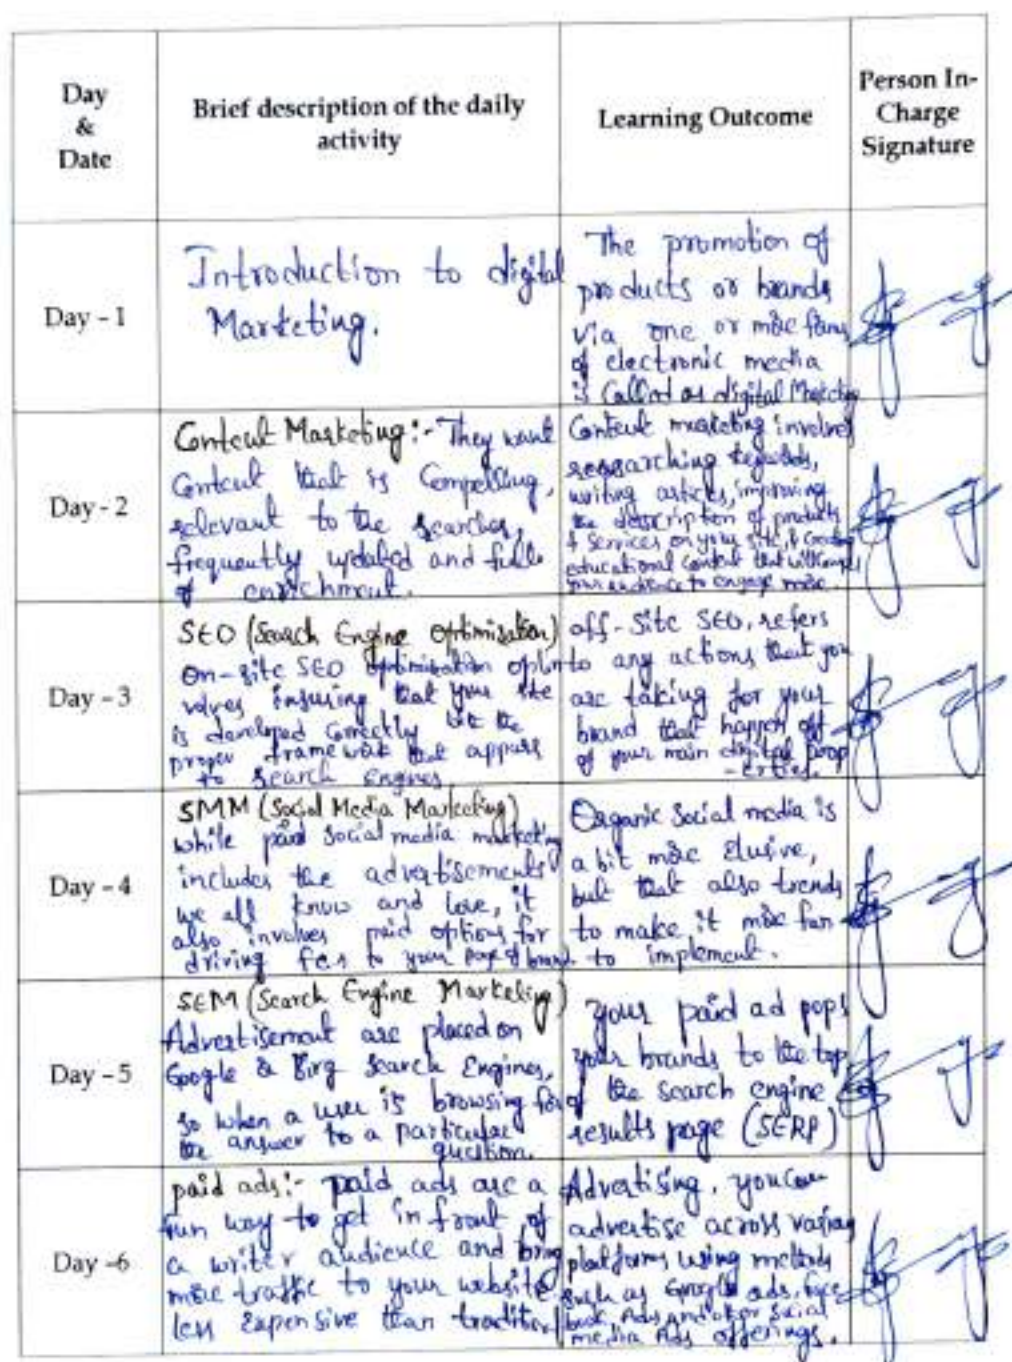 Day
&
Date
Brief description of the daily
activity
Learning Outcome
Person In-
Charge
Signature
Day - 1
Introduction to digital
Marketing.
The promotion of
products or brands
via one or more
of electronic media
is called as digital
Day - 2
Content Marketing:- They want
Content that is Compelling,
relevant to the searches,
frequently updated and full
of enrichment.
Content marketing involves
researching keywords,
writing articles, improving
the description of products
& services on your site, &
educational content that will
your audience to engage more.
Day - 3
SEO (Search Engine Optimization)
On-site SEO optimization opt in
volves insuring that your site
is developed correctly the
proper framework that
to search engines.
off-Site SEO, refers
to any actions that you
are taking for your
brand that happen off
of your main digital prop
-erties.
Day - 4
SMM (Social Media Marketing)
while paid social media marketing
includes the advertisements
we all know and love, it
also involves paid options for
driving to your page & brand
Organic Social media is
a bit more Elusive,
but that also trends
to make it more fun
to implement.
Day - 5
SEM (Search Engine Marketing)
Advertisement are placed on
Google & Bing Search Engines,
so when a user is browsing for
the answer to a particular
question.
your paid ad pops
your brands to the top
of the search engine
results page (SERP)
Day -6
paid ads:- paid ads are a
fun way to get in front of
a writer audience and bring
more traffic to your website
less Expensive than
Advertising, you can
advertise across various
platforms using methods
such as Google ads, face
book Ads and other Social
media Ads offerings.